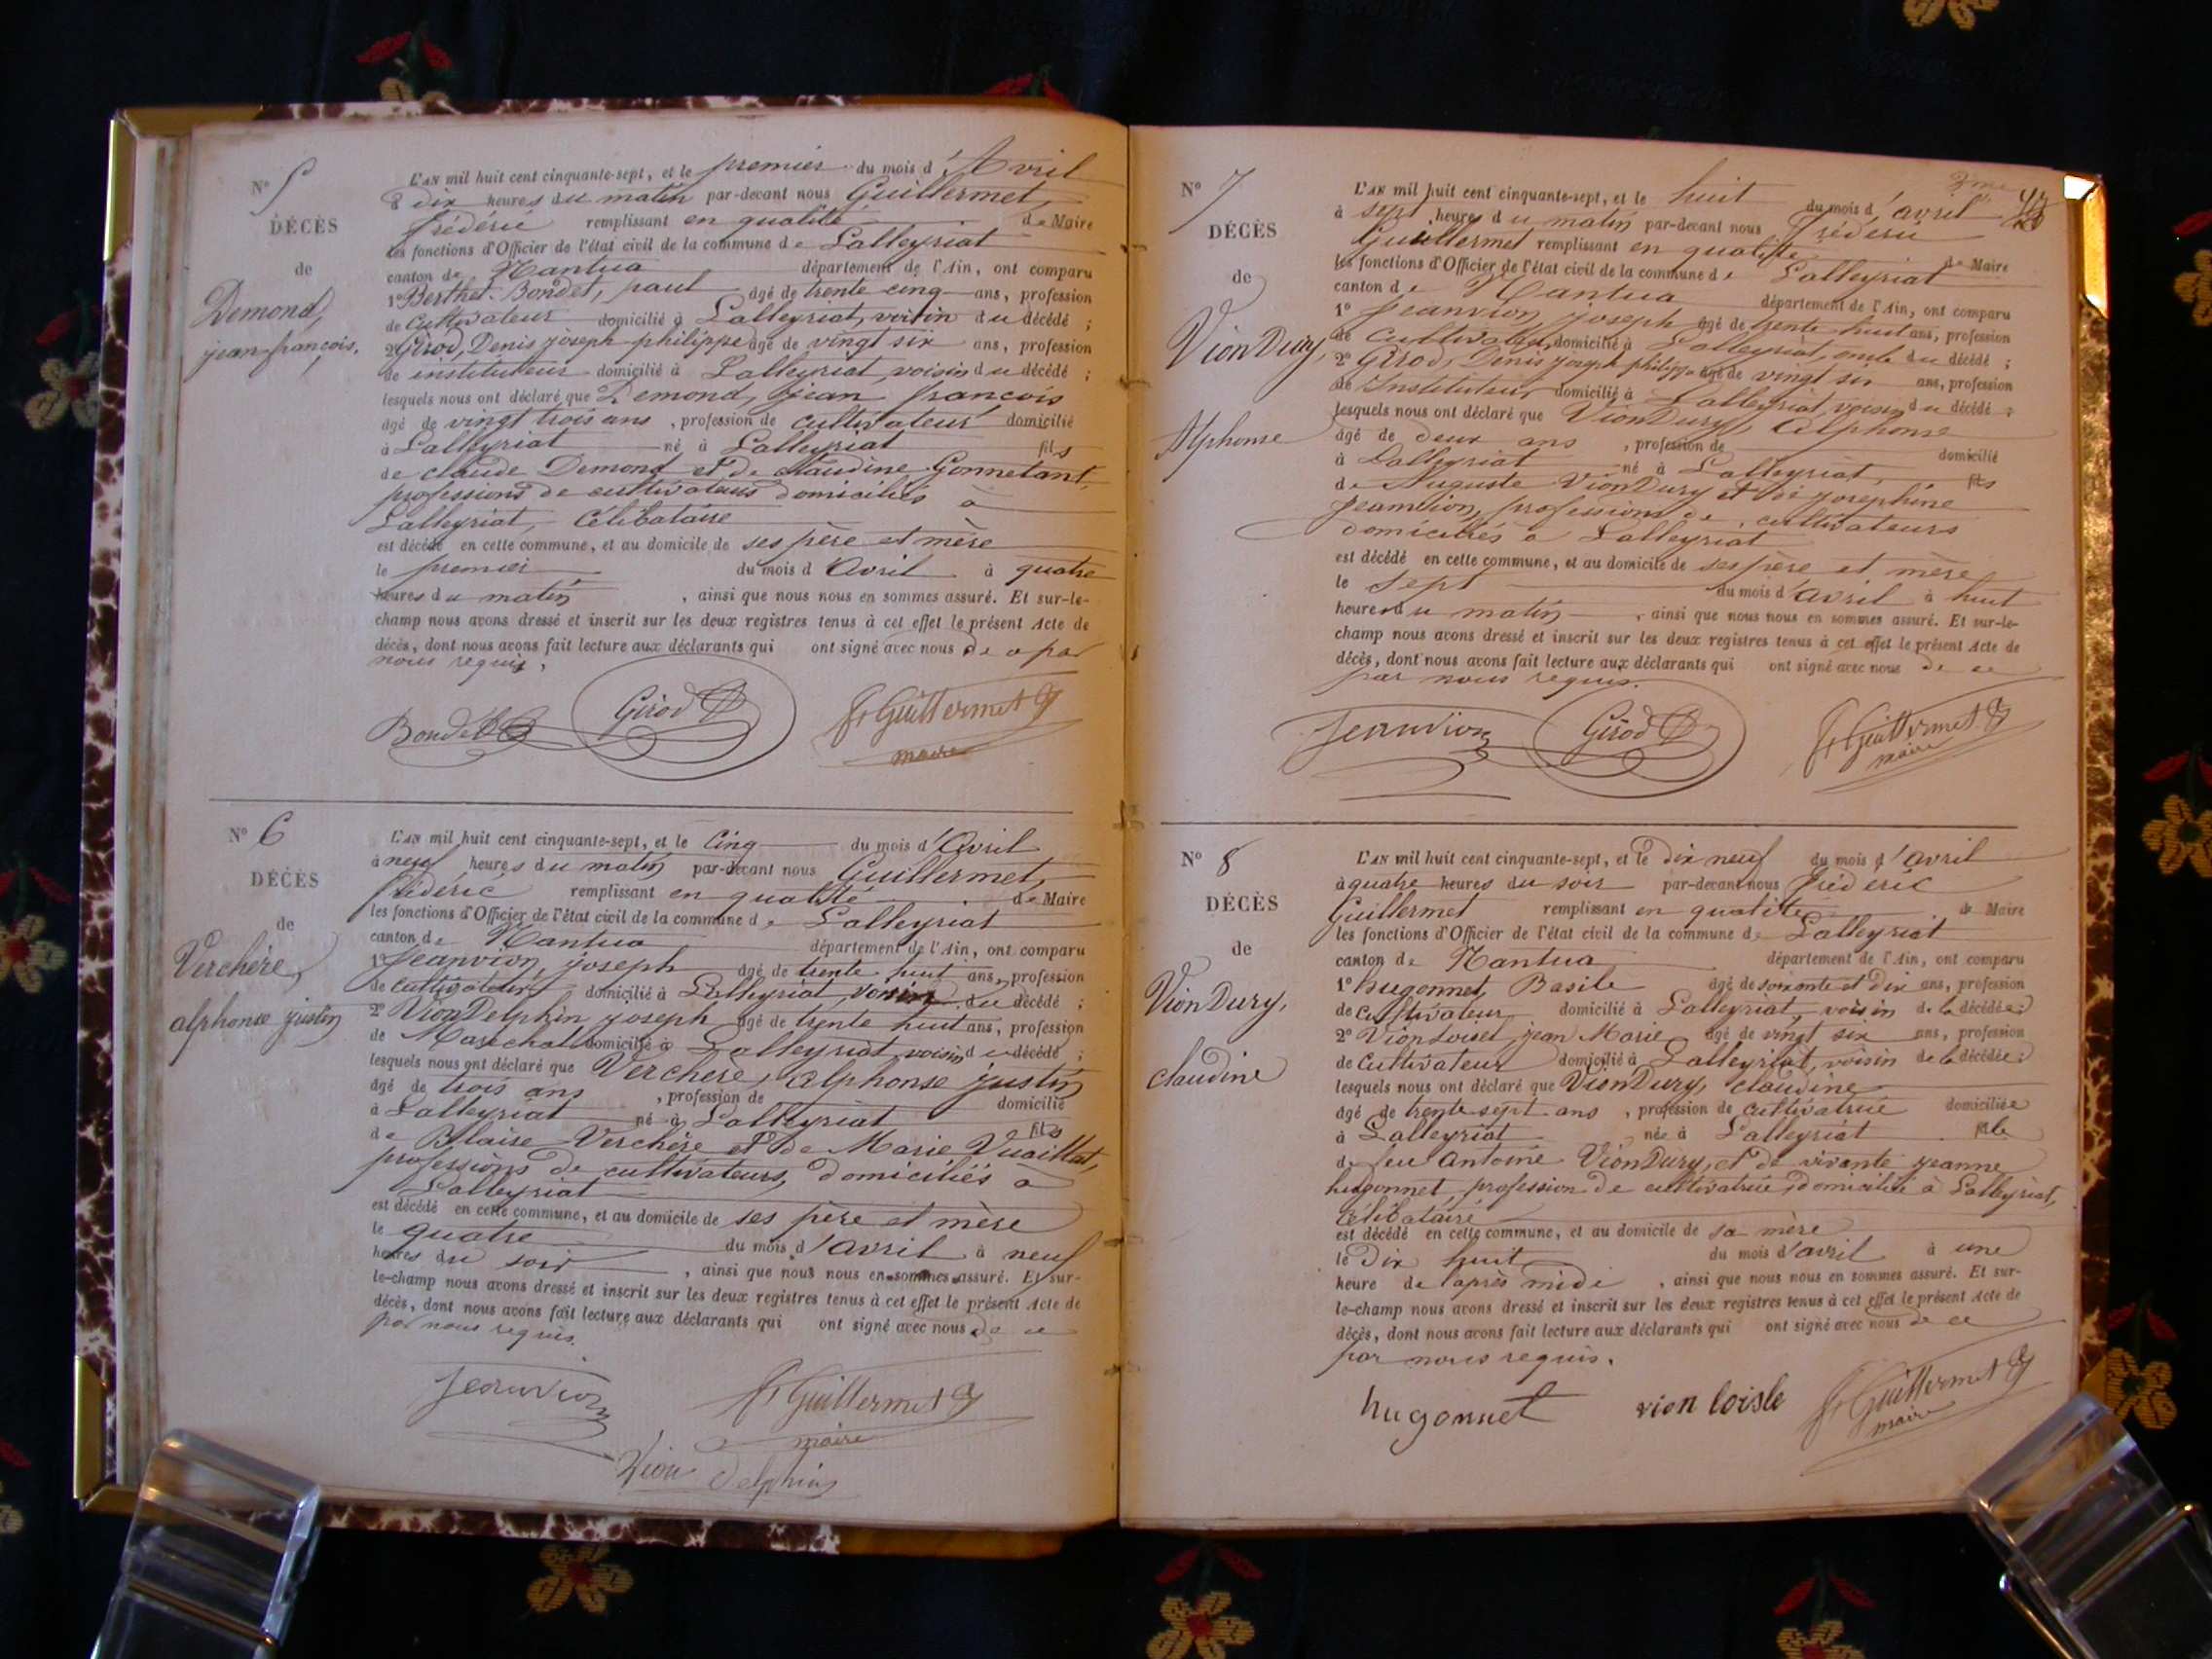 N° 5
DÉCÈS
de
Demond,
jean françois,
L'AN mil huit cent cinquante-sept, et le premier du mois d'Avril
à dix heures du matin par-devant nous Guillermet,
frédéric remplissant en qualité de Maire
les fonctions d'Officier de l'état civil de la commune de Lalleyriat
canton de Nantua département de l'Ain, ont comparu
1° Berthet-Bondet, paul âgé de trente cinq ans, profession
de cultivateur domicilié à Lalleyriat, voisin du décédé ;
2° Girod, Denis joseph philippe âgé de vingt six ans, profession
de instituteur domicilié à Lalleyriat, voisin du décédé ;
lesquels nous ont déclaré que Demond, jean françois
âgé de vingt trois ans , profession de cultivateur domicilié
à Lalleyriat né à Lalleyriat fils
de claude Demond et de claudine Gonnetant,
professions de cultivateurs domiciliés à
Lalleyriat, Célibataire
est décédé en cette commune, et au domicile de ses père et mère
le premier du mois d'Avril à quatre
heures du matin , ainsi que nous nous en sommes assuré. Et sur-le-
champ nous avons dressé et inscrit sur les deux registres tenus à cet effet le présent Acte de
décès, dont nous avons fait lecture aux déclarants qui ont signé avec nous de par
nous requis,
Bondet Girod fr Guillermet
maire
N° 6
DÉCÈS
de
Verchère,
alphonse justin
L'AN mil huit cent cinquante-sept, et le Cinq du mois d'Avril
à neuf heures du matin par-devant nous Guillermet,
frédéric remplissant en qualité de Maire
les fonctions d'Officier de l'état civil de la commune de Lalleyriat
canton de Nantua département de l'Ain, ont comparu
1° Jeanvion, joseph âgé de trente huit ans, profession
de cultivateur domicilié à Lalleyriat, voisin du décédé ;
2° VionDelphin joseph âgé de trente huit ans, profession
de Marechal domicilié à Lalleyriat, voisin du décédé ;
lesquels nous ont déclaré que Verchère, alphonse justin
âgé de trois ans , profession de domicilié
à Lalleyriat né à Lalleyriat fils
de Blaise Verchère et de Marie Vuaillat,
professions de cultivateurs, domiciliés à
Lalleyriat
est décédé en cette commune, et au domicile de ses père et mère
le quatre du mois d'avril à neuf
heures du soir , ainsi que nous nous en sommes assuré. Et sur-
le-champ nous avons dressé et inscrit sur les deux registres tenus à cet effet le présent Acte de
décès, dont nous avons fait lecture aux déclarants qui ont signé avec nous de ce
par nous requis.
Jeanvion fr Guillermet
maire
Vion Delphin
N° 7
DÉCÈS
de
VionDury,
Alphonse
L'AN mil huit cent cinquante-sept, et le huit du mois d'avril
à sept heures du matin par-devant nous Frédéric
Guillermet remplissant en qualité de Maire
les fonctions d'Officier de l'état civil de la commune de Lalleyriat
canton de Nantua département de l'Ain, ont comparu
1° Jeanvion, joseph âgé de trente huit ans, profession
de Cultivateur, domicilié à Lalleyriat, oncle du décédé ;
2° Girod, Denis joseph philippe âgé de vingt six ans, profession
de Instituteur domicilié à Lalleyriat, voisin du décédé ;
lesquels nous ont déclaré que VionDury, Alphonse
âgé de deux ans , profession de domicilié
à Lalleyriat né à Lalleyriat, fils
de Auguste VionDury et de josephine
Jeanvion, professions de cultivateurs
domiciliés à Lalleyriat
est décédé en cette commune, et au domicile de ses père et mère
le sept du mois d'avril à huit
heures du matin , ainsi que nous nous en sommes assuré. Et sur-le-
champ nous avons dressé et inscrit sur les deux registres tenus à cet effet le présent Acte de
décès, dont nous avons fait lecture aux déclarants qui ont signé avec nous de ce
par nous requis.
Jeanvion Girod fr Guillermet
maire
N° 8
DÉCÈS
de
VionDury,
claudine
L'AN mil huit cent cinquante-sept, et le dix neuf du mois d'avril
à quatre heures du soir par-devant nous frédéric
Guillermet remplissant en qualité de Maire
les fonctions d'Officier de l'état civil de la commune de Lalleyriat
canton de Nantua département de l'Ain, ont comparu
1° hugonnet, Basile âgé de soixante et dix ans, profession
de Cultivateur domicilié à Lalleyriat, voisin de la décédée ;
2° VionLoisel, jean Marie âgé de vingt six ans, profession
de Cultivateur domicilié à Lalleyriat, voisin de la décédée ;
lesquels nous ont déclaré que VionDury, claudine
âgé de trente sept ans , profession de cultivatrice domiciliée
à Lalleyriat née à Lalleyriat fille
de feu Antoine VionDury, et de vivante jeanne
hugonnet, profession de cultivatrice, domiciliée à Lalleyriat,
célibataire
est décédé en cette commune, et au domicile de sa mère
le Dix huit du mois d'avril à une
heure de l'après midi , ainsi que nous nous en sommes assuré. Et sur-
le-champ nous avons dressé et inscrit sur les deux registres tenus à cet effet le présent Acte de
décès, dont nous avons fait lecture aux déclarants qui ont signé avec nous de ce
par nous requis.
hugonnet vion loisle fr Guillermet
maire